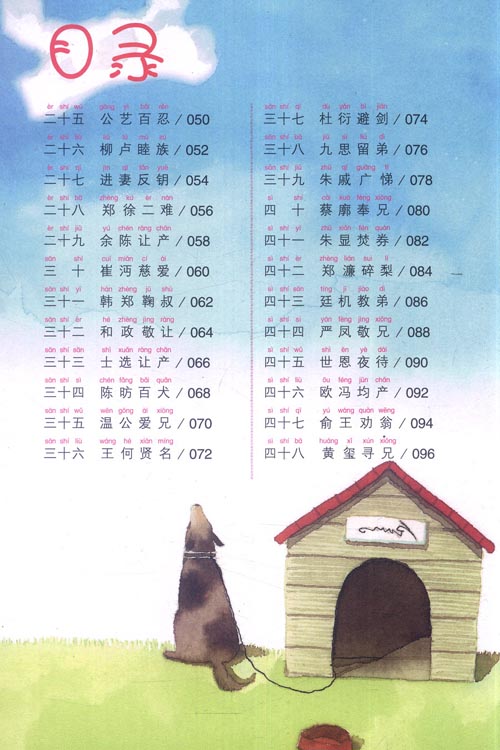 目录
èr shí wǔ gōng yì bǎi rěn
二十五 公艺百忍/050
èr shí liù liǔ lú mù zú
二十六 柳卢睦族/052
èr shí qī jìn qī fǎn yuè
二十七 进妻反钥/054
èr shí bā zhèng xú èr nán
二十八 郑徐二难/056
èr shí jiǔ yú chén ràng chǎn
二十九 余陈让产/058
sān shí cuī miǎn cí ài
三十 崔沔慈爱/060
sān shí yī hán zhèng jū shū
三十一 韩郑鞠叔/062
sān shí èr hé zhèng jìng ràng
三十二 和政敬让/064
sān shí sān shì xuǎn ràng chǎn
三十三 士选让产/066
sān shí sì chén fǎng bǎi quǎn
三十四 陈昉百犬/068
sān shí wǔ wēn gōng ài xiōng
三十五 温公爱兄/070
sān shí liù wáng hé xián míng
三十六 王何贤名/072
sān shí qī dù yǎn bì jiàn
三十七 杜衍避剑/074
sān shí bā jiǔ sī liú dì
三十八 九思留弟/076
sān shí jiǔ zhū qī guǎng tì
三十九 朱戚广悌/078
sì shí cài kuò fèng xiōng
四十 蔡廓奉兄/080
sì shí yī zhū xiǎn fén quàn
四十一 朱显焚券/082
sì shí èr zhèng lián suì lí
四十二 郑濂碎梨/084
sì shí sān tíng jī jiào dì
四十三 廷机教弟/086
sì shí sì yán fèng jìng xiōng
四十四 严凤敬兄/088
sì shí wǔ shì ēn yè dài
四十五 世恩夜待/090
sì shí liù ōu féng jūn chǎn
四十六 欧冯均产/092
sì shí qī yú wáng quàn wēng
四十七 俞王劝翁/094
sì shí bā huáng xǐ xún xiōng
四十八 黄玺寻兄/096